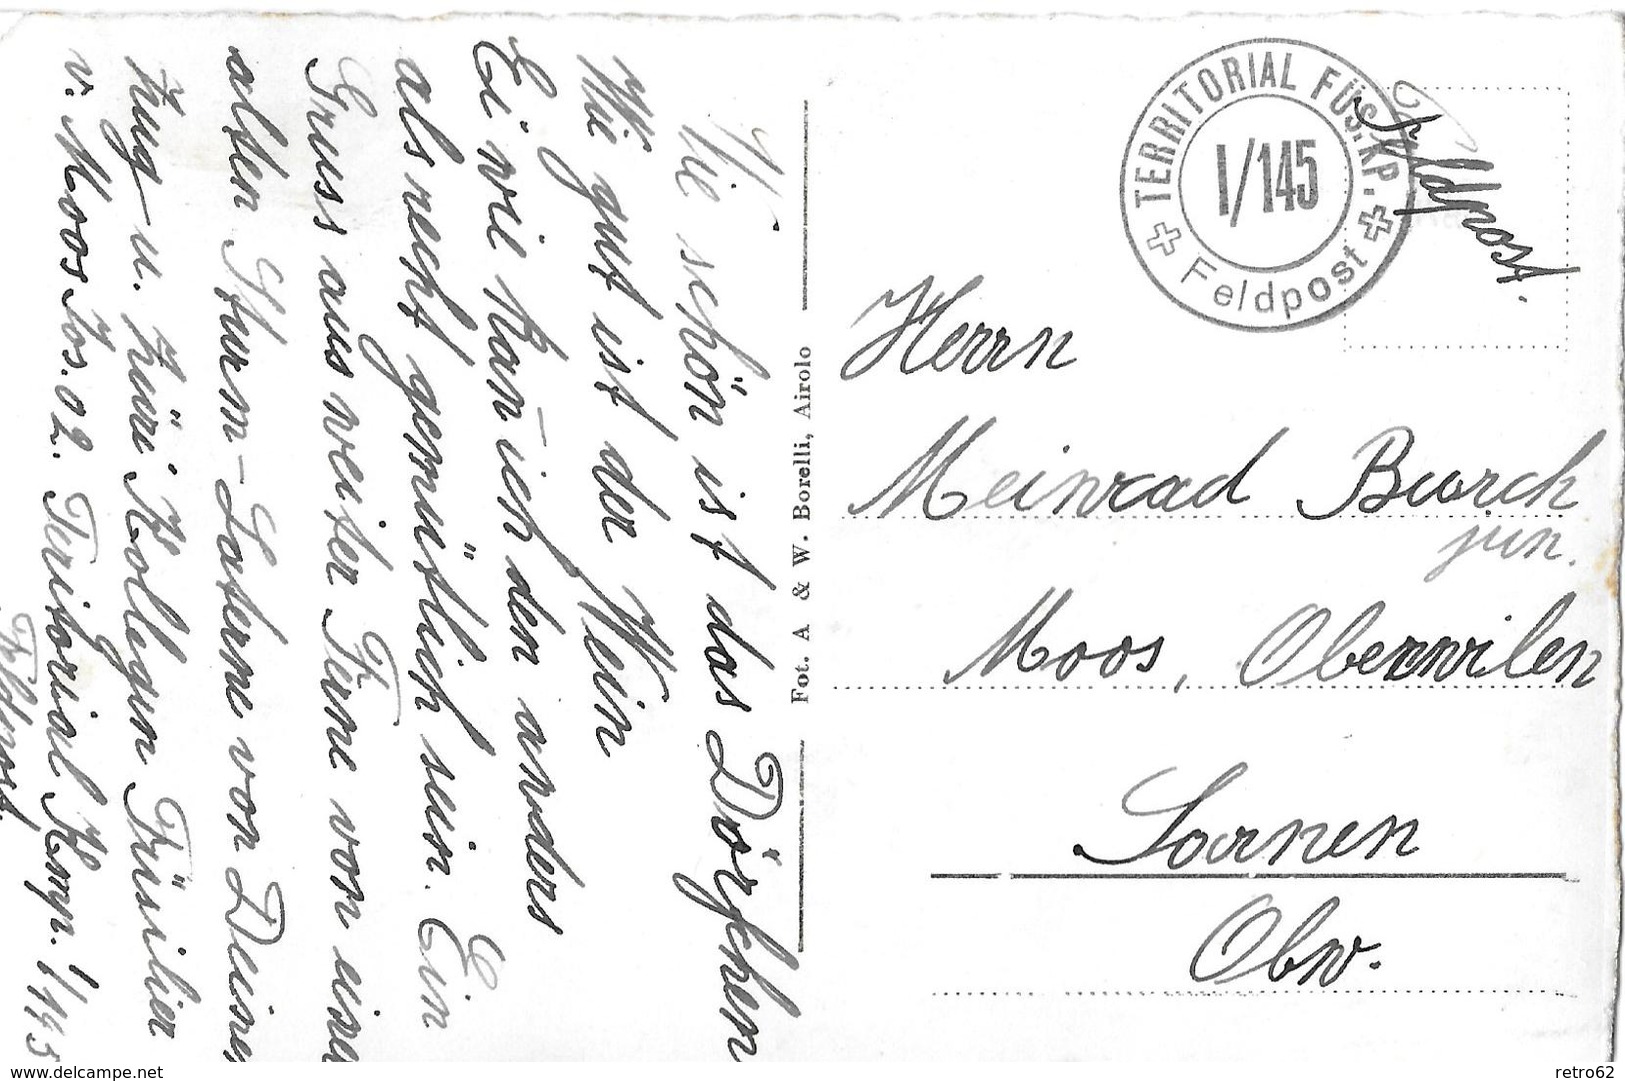 Wie schön ist das Dörfchen
Wie gut ist der Wein
Ei wie kan ich den anders
als recht gemütlich sein. Ein
Gruss aus weiter Ferne von einem
alten Sturm-Laterne von Deinem
Zug u. Züri Kollegen Füsilier
v. Moos Jos. 02. Teritorial Komp. 1/145
Feldpost.
Fot. A & W. Borelli, Airolo
TERRITORIAL FÜS. KP.
I/145
Feldpost
Feldpost.
Herrn
Meinrad Burch
jun.
Moos, Oberwilen
Sarnen
Obw.
delcampe.net
retro62